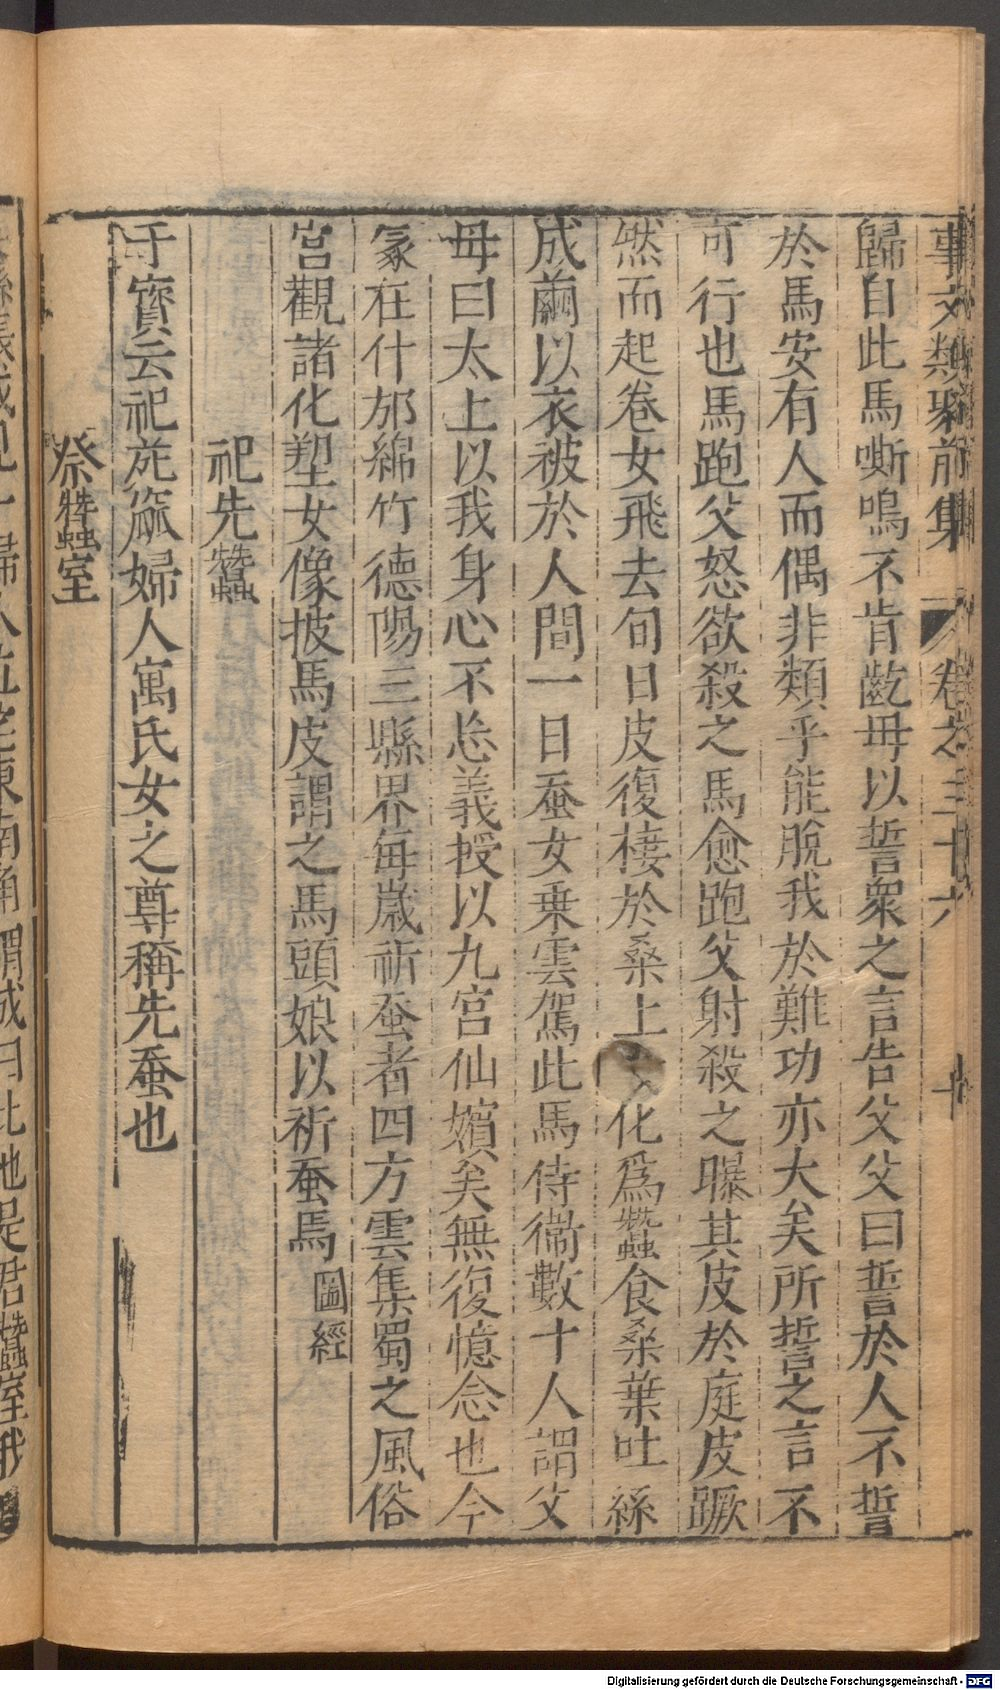 事文類聚前集 卷之三十六 十
歸自此馬嘶鳴不肯齕母以誓衆之言告父父曰誓於人不誓
於馬安有人而偶非類乎能脫我於難功亦大矣所誓之言不
可行也馬跑父怒欲殺之馬愈跑父射殺之曝其皮於庭皮蹶
然而起卷女飛去旬日皮復棲於桑上女化爲蠶食桑葉吐絲
成繭以衣被於人間一日蚕女乗雲駕此馬侍衞數十人謂父
母曰太上以我身心不忘義授以九宮仙嬪矣無復憶念也今
冢在什邡綿竹德陽三縣界每歲祈蚕者四方雲集蜀之風俗
宮觀諸化塑女像披馬皮謂之馬頭娘以祈蚕馬圖經
祀先蠶
于寳云祀菀窳婦人寓氏女之尊稱先蚕也
祭蠶室
婦人立宅東南角謂成曰此地是君蠶室我
Digitalisierung gefördert durch die Deutsche Forschungsgemeinschaft - DFG